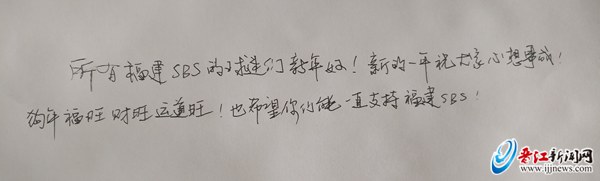 所有福建SBS的球迷们新年好！新的一年祝大家心想事成！
狗年福旺财旺运道旺！也希望你们能一直支持福建SBS！
晋江新闻网
www.ijjnews.com